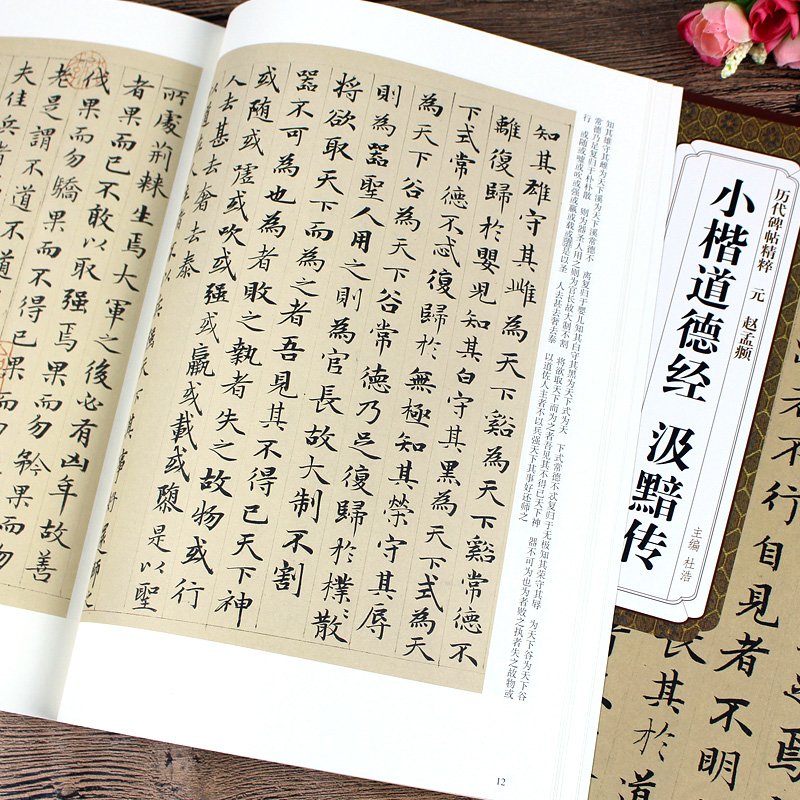 知其雄守其雌为天下溪为天下溪常德不 离复归于婴儿知其白守其黑为天下式为天 下式常德不忒复归于无极知其荣守其辱 为天下谷为天下谷
常德乃足复归于朴朴散 则为器圣人用之则为官长故大制不割 将欲取天下而为之者吾见其不得已天下神 器不可为也为者败之执者失之故物或
行 或随或嘘或吹或强或羸或载或隳是以圣 人去甚去奢去泰 以道佐人主者不以兵强天下其事好还师之
知其雄守其雌為天下谿為天下谿常德不
離復歸於嬰兒知其白守其黑為天下式為天
下式常德不忒復歸於無極知其榮守其辱
為天下谷為天下谷常德乃足復歸於樸、散
則為器聖人用之則為官長故大制不割
將欲取天下而為之者吾見其不得已天下神
器不可為也為者敗之執者失之故物或行
或隨或噓或吹或强或羸或載或隳是以聖
人去甚去奢去泰
12
所處荊棘生焉大軍之後必有凶年故善
者果而已不敢以取强焉果而勿矜果而勿
伐果而勿驕果而不得已果而勿
老是謂不道不道
夫佳兵者
历代碑帖精粹 元 赵孟頫
小楷道德经 汲黯传
主编 杜浩
者不行
自見者不明
長其於道